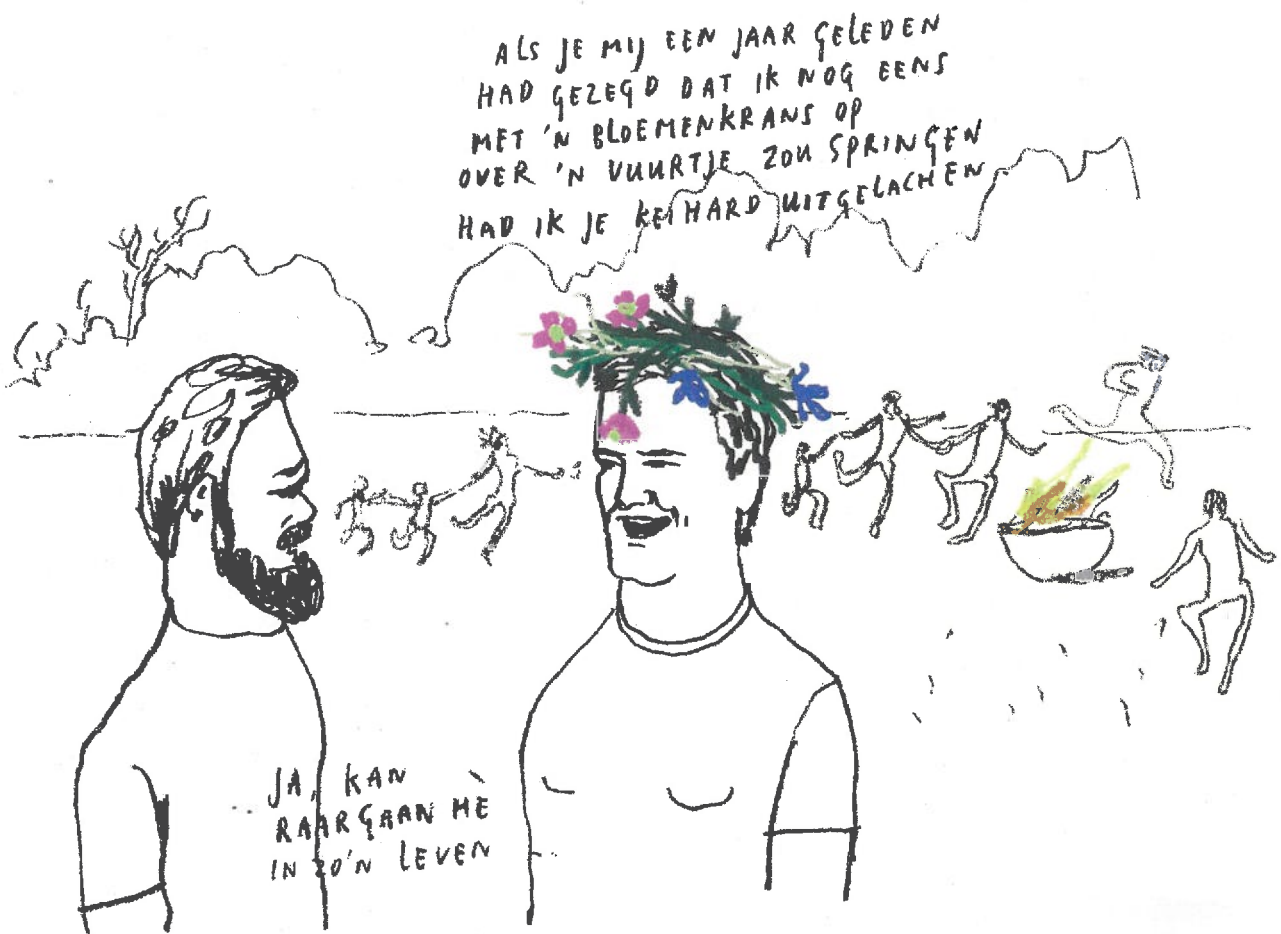 ALS JE MIJ EEN JAAR GELEDEN
HAD GEZEGD DAT IK NOG EENS
MET 'N BLOEMENKRANS OP
OVER 'N VUURTJE ZOU SPRINGEN
HAD IK JE KEIHARD UITGELACHEN
JA, KAN
RAARGAAN HÈ
IN ZO'N LEVEN